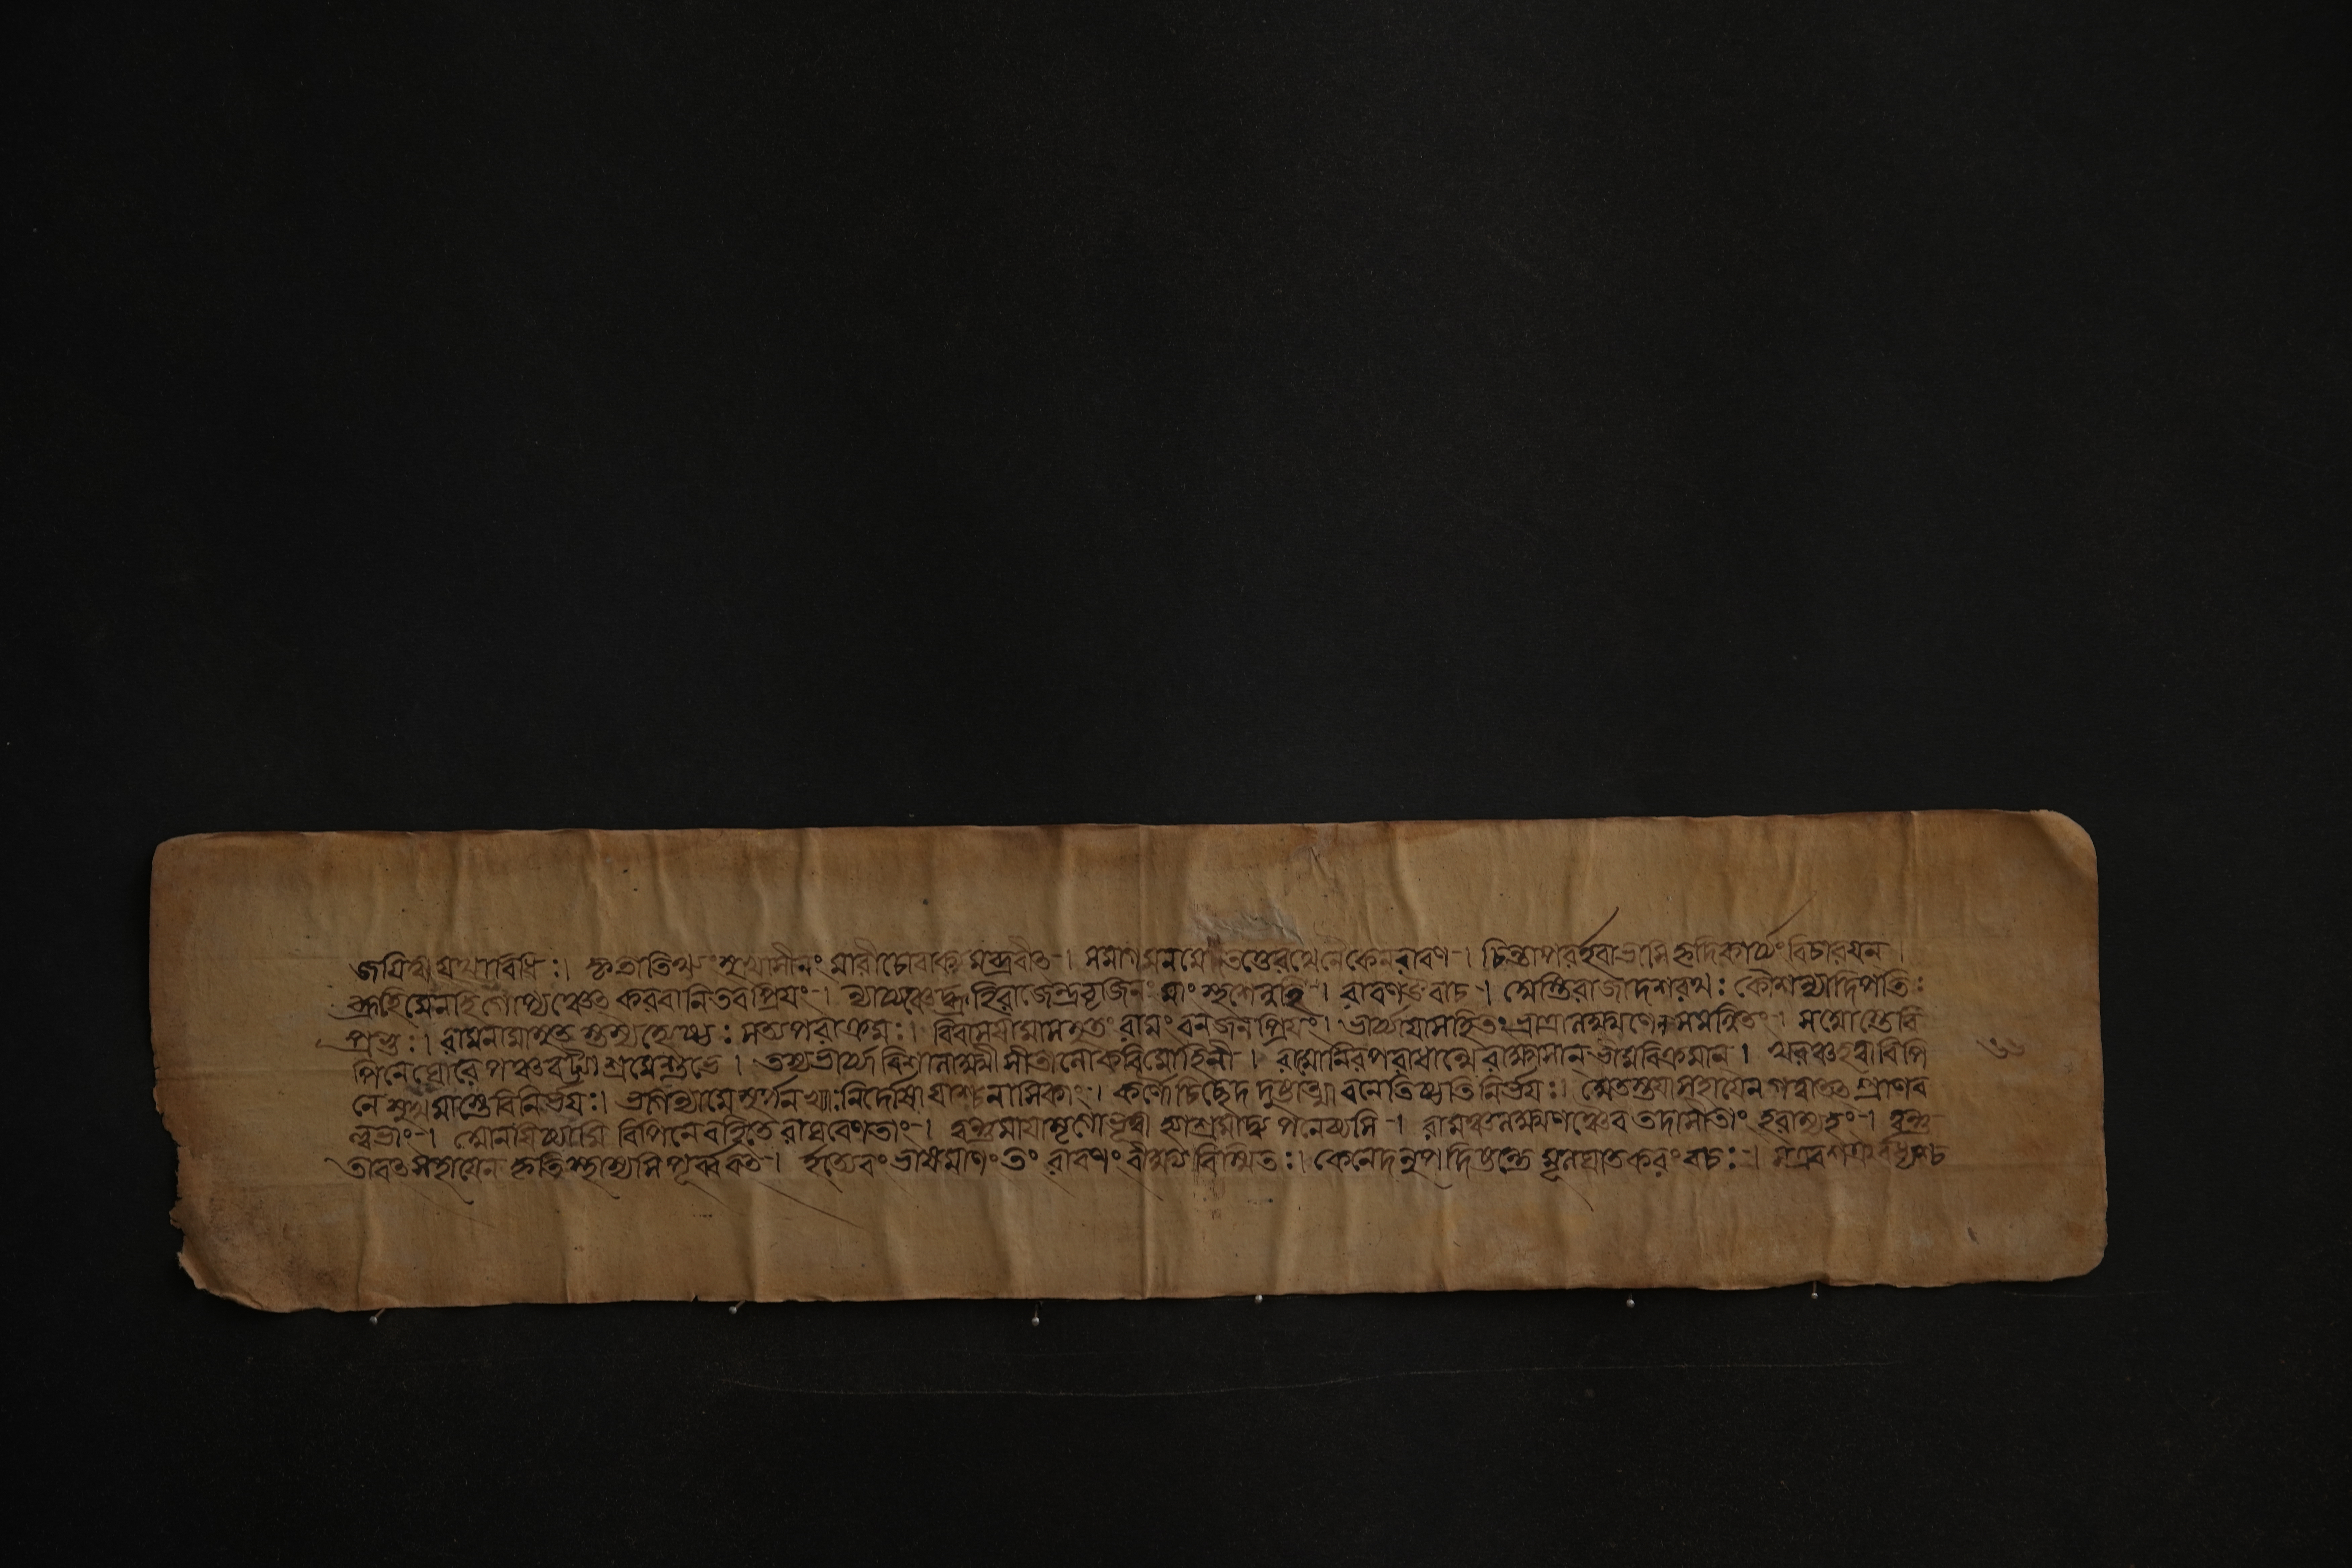 জযিত্বা যথাবিধি:। কৃতাতিথ্যং সুখাসীনং মারীচোবাক্যমব্রবীত্-। সমাগমনমেতত্তেরথেনৈকেনরাবণ-। চিন্তাপরইবাভাসি হৃদিকার্য্যং বিচারযন।
ব্রূহিমেনহিগোপ্যঞ্চেত্ করবানিতবপ্রিযং-। ন্যায্যঞ্চেদ্ব্রূহিরাজেন্দ্রবৃজিনং মাংস্পৃশেন্নহি-। রাবণউবাচ-। অস্তিরাজাদশরথ: কৌশল্যাদিপতি:
প্রভু:। রামনামাসুতস্তস্যজ্যেষ্ঠ: সত্যপরাক্রম:। বিবাসযামাসসুতং রামং বনজনপ্রিযং। ভার্য্যাযাসহিতং ভ্রাত্রালক্ষ্মণেনসমন্বিতং-। সআস্তেবি
পিনেঘোরে পঞ্চবট্যাশ্রমেশুভে। তস্যভার্য্যা বিশালাক্ষী সীতালোকবিমোহিনী-। রামোনিরপরাধান্মেরাক্ষসান্ ভীমবিক্রমান্। খরঞ্চহত্বাবিপি
নে সুখমাস্তেবিনির্ভয:। ভগিন্যামেসূর্পনখ্যা:নির্দোষাযাশ্চনাসিকাং-। কর্ণৌচিচ্ছেদ দুষ্টাত্মা বনেতিষ্ঠতিনির্ভয:। অতস্ত্বযাসহাযেনগত্বাতত্প্রাণব
ল্লভাং-। আনযিষ্যামি বিপিনেরহিতে রাঘবেণতাং-। ত্বন্তুমাযামৃগোভূত্বা হ্যাশ্রমাদপনেষ্যসি-। রামঞ্চলক্ষ্মণঞ্চৈব তদাসীতাং হরাম্যহং-। ত্বন্তু
তাবত্সহাযেন কৃতিস্থাস্যসি পূর্ব্ববত্-। ইত্যেবং ভাষমাণং তং রাবণং বীক্ষ্যবিস্মিত:। কেনেদমুপদিষ্টন্তে মূলঘাতকরং বচ:-। সএবশত্রুর্বধ্যশ্চ